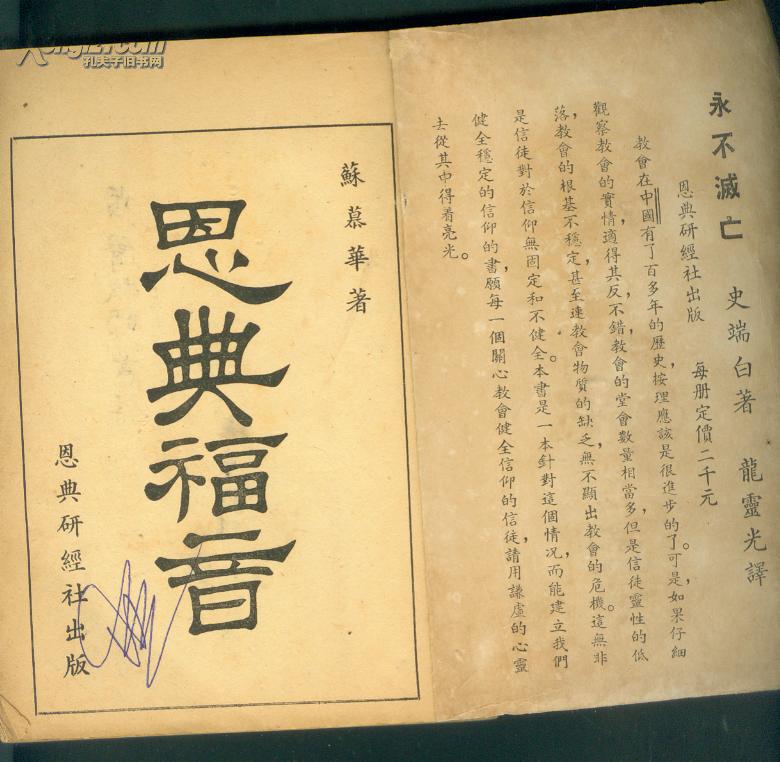 永不滅亡 史端白著 龍靈光譯
恩典研經社出版 每册定價二千元
教會在中國有了百多年的歷史，按理應該是很進步的了。可是，如果仔細
觀察教會的實情，適得其反，不錯，教會的堂會數量相當多，但是信徒靈性的低
落，教會的根基不穩定，甚至連教會物質的缺乏，無不顯出教會的危機。這無非
是信徒對於信仰無固定和不健全。本書是一本針對這個情況，而能建立我們
健全穩定的信仰的書，願每一個關心教會健全信仰的信徒，請用謙虛的心靈
去從其中得着亮光。
蘇慕華著
恩典福音
恩典研經社出版
孔夫子旧书网